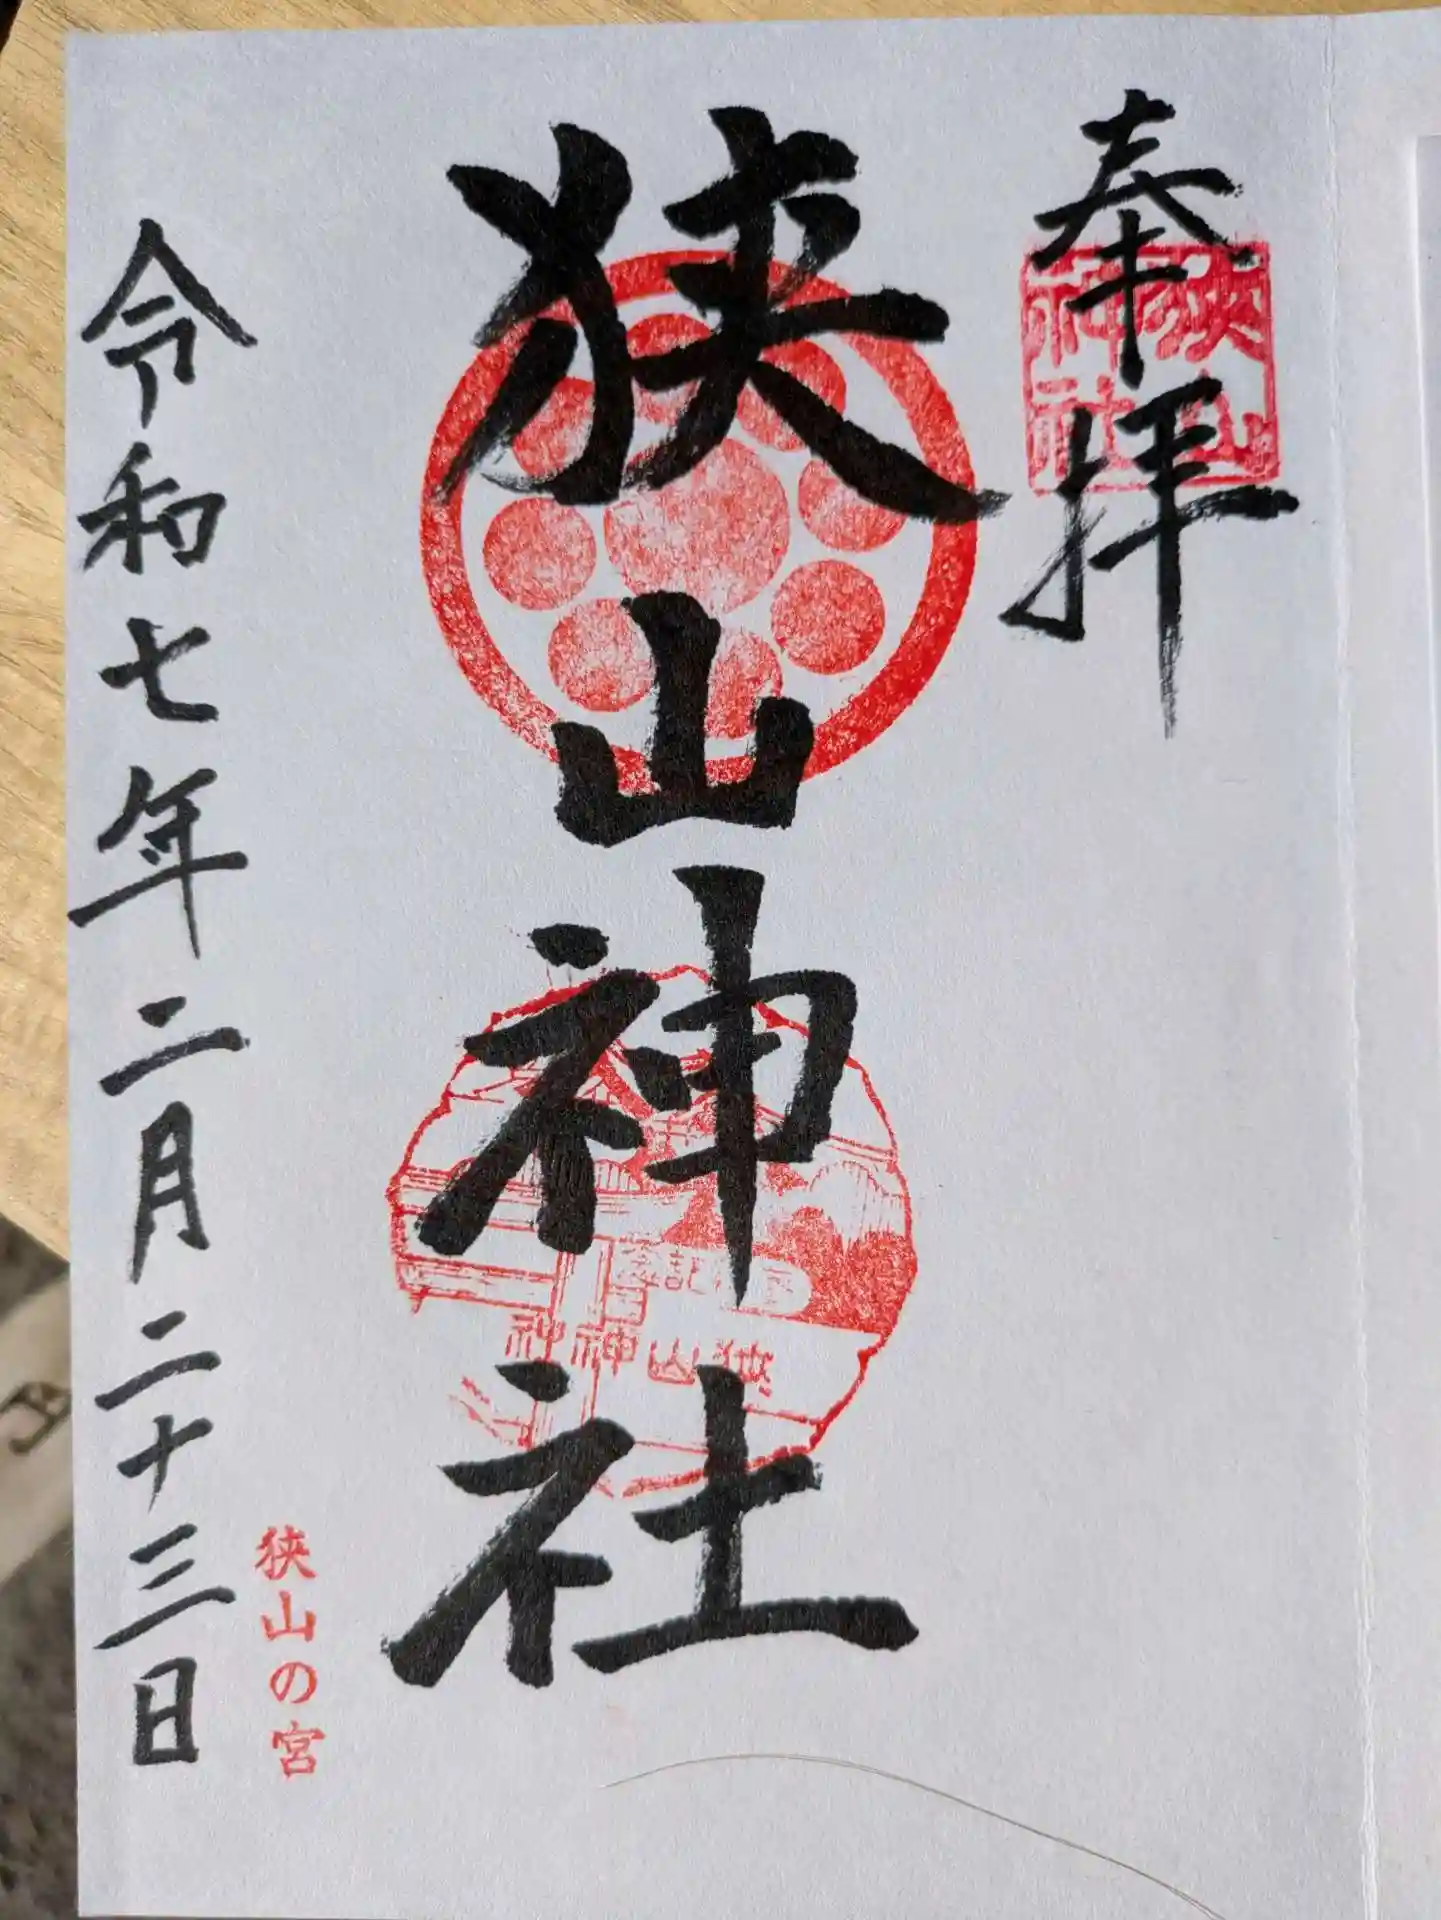 奉拝
狭山神社
狭山神社
記念
狭山神社
狭山の宮
令和七年二月二十三日